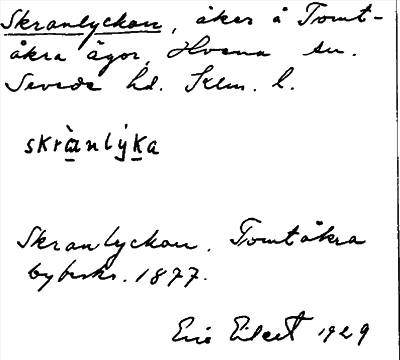 Skranlyckan, åker å Tomt-
åkra ägor, Hvena sn.
Sevede hd. Kalm. l.
skrànlýka
Skranlyckan. Tomtåkra
bybeskr. 1877.
Eric Elert 1929